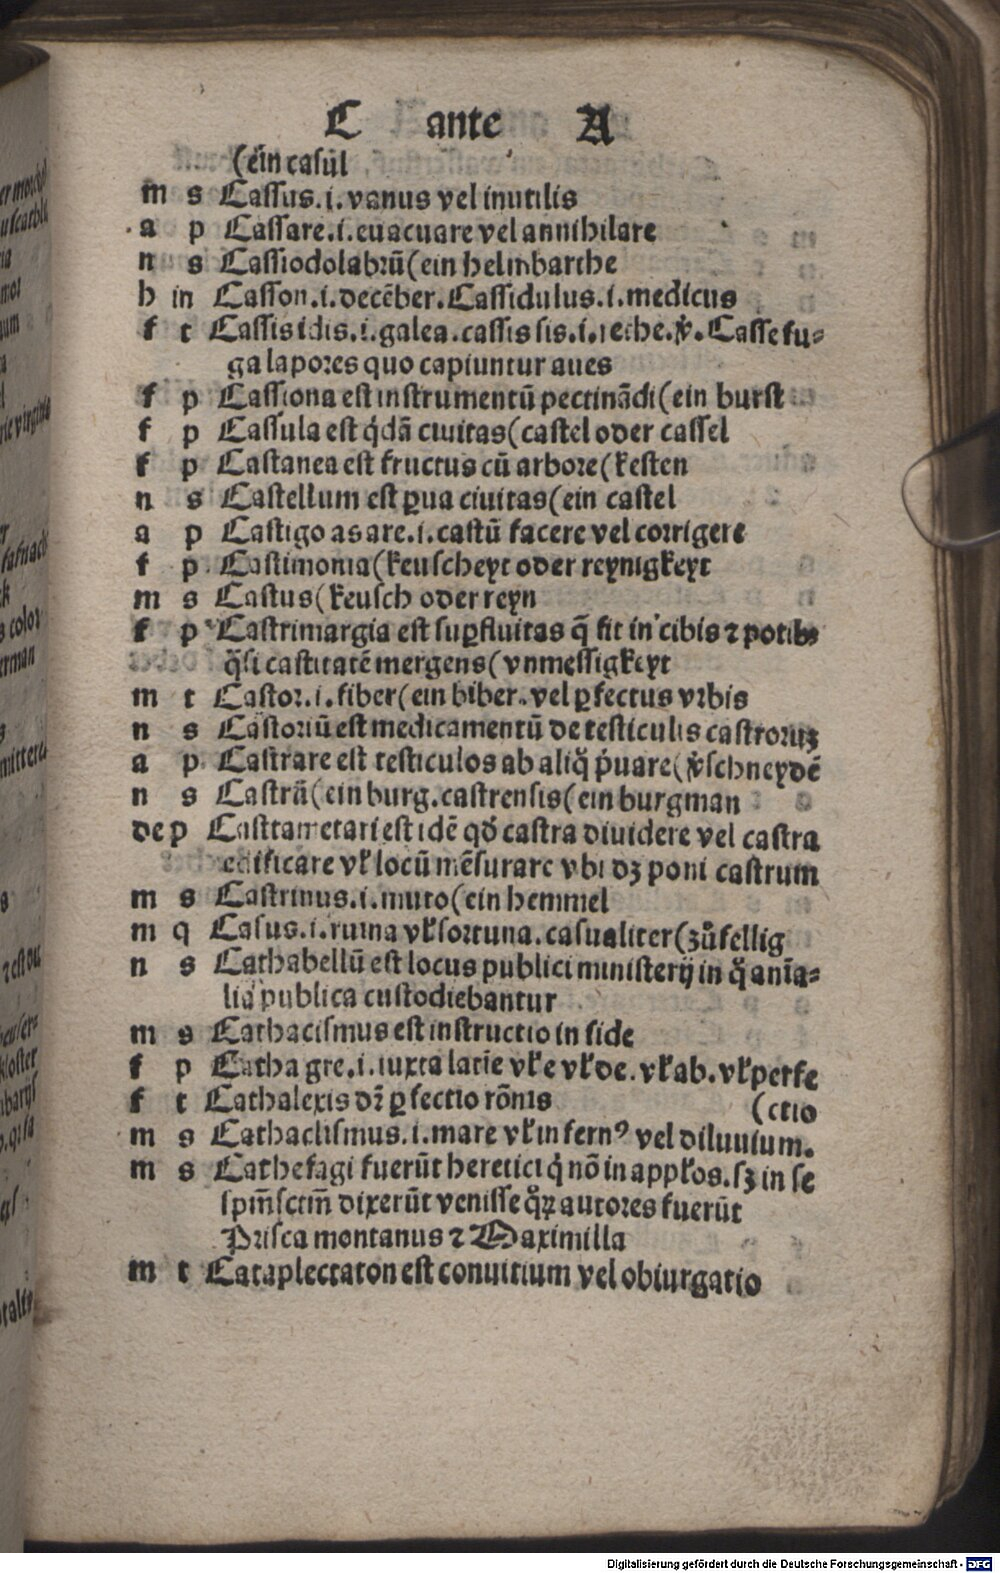 C ante A
(ein casul
m s Cassus.i.vanus vel inutilis
a p Cassare.i.euacuare vel annihilare
n s Cassiodolabrū(ein helmbarthe
h in Casson.i.decēber.Cassidulus.i.medicus
f t Cassis idis.i.galea.cassis sis.i.rethe. Casse fu-
ga lapores quo capiuntur aues
f p Cassiona est instrumentū pectinādi(ein burst
f p Cassula est q̇dā ciuitas(castel oder cassel
f p Castanea est fructus cū arbore(kesten
n s Castellum est ꝑua ciuitas(ein castel
a p Castigo as are.i.castū facere vel corrigere
f p Castimonia(keuscheyt oder reynigkeyt
m s Castus(keusch oder reyn
f p Castrimargia est suꝑfluitas q̄ fit in cibis ⁊ potibꝰ
q̄si castitatē mergens(vnmessigkeyt
m t Castor.i.fiber(ein biber.vel ꝑfectus vrbis
n s Castoriū est medicamentū de testiculis castroruꝫ
a p Castrare est testiculos ab aliq̄ ṗuare(v̇schneydē
n s Castrū(ein burg.castrensis(ein burgman
de p Castrametari est idē qd̛ castra diuidere vel castra
edificare vl̛ locū mēsurare vbi dꝫ poni castrum
m s Castrinus.i.muto(ein hemmel
m q Casus.i.ruina vl̛ fortuna.casualiter(zůfellig
n s Cathabellū est locus publici ministerij in q̊ anīa-
lia publica custodiebantur
m s Cathacismus est instructio in fide
f p Catha gre.i.iuxta latīe vl̛ e vl̛ de.vl̛ ab.vl̛ perfe
f t Cathalexis dz̄ ꝑfectio rōnis (ctio
m s Cathaclismus.i.mare vl̛ infernꝰ vel diluuium.
m s Cathefagi fuerūt heretici q̇ nō in appl̛os.sꝫ in se
spm̄sctm̄ dixerūt venisse q̊ꝝ autores fuerūt
Prisca montanus ⁊ Maximilla
m t Cataplectaton est conuitium vel obiurgatio
Digitalisierung gefördert durch die Deutsche Forschungsgemeinschaft - DFG